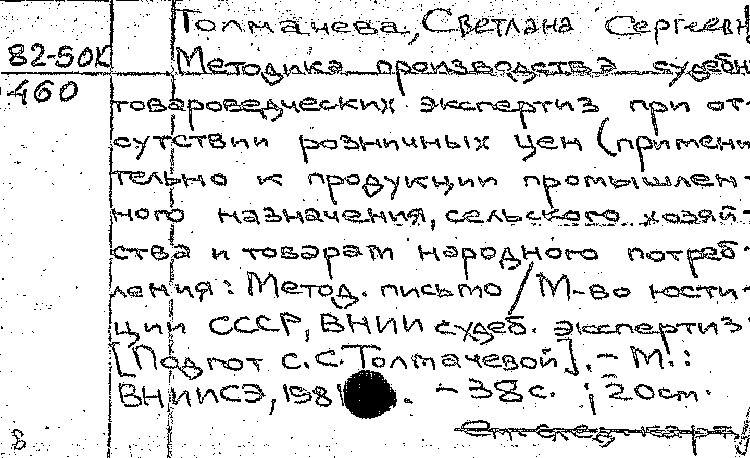 Толмачева, Светлана Сергеевн
82-50К Методика производства судебн
460 товароведческих экспертиз при от-
сутствии розничных цен (примени
тельно к продукции промышлен-
ного назначения, сельского хозяй-
ства и товарам народного потреб-
ления: Метод. письмо / М-во юсти-
ции СССР, ВНИИ судеб. экспертиз
[Подгот С.С.Толмачевой]. - М.:
ВНИИСЭ, 1981. - 38 с. ; 20 см.
8 См. след. карт.